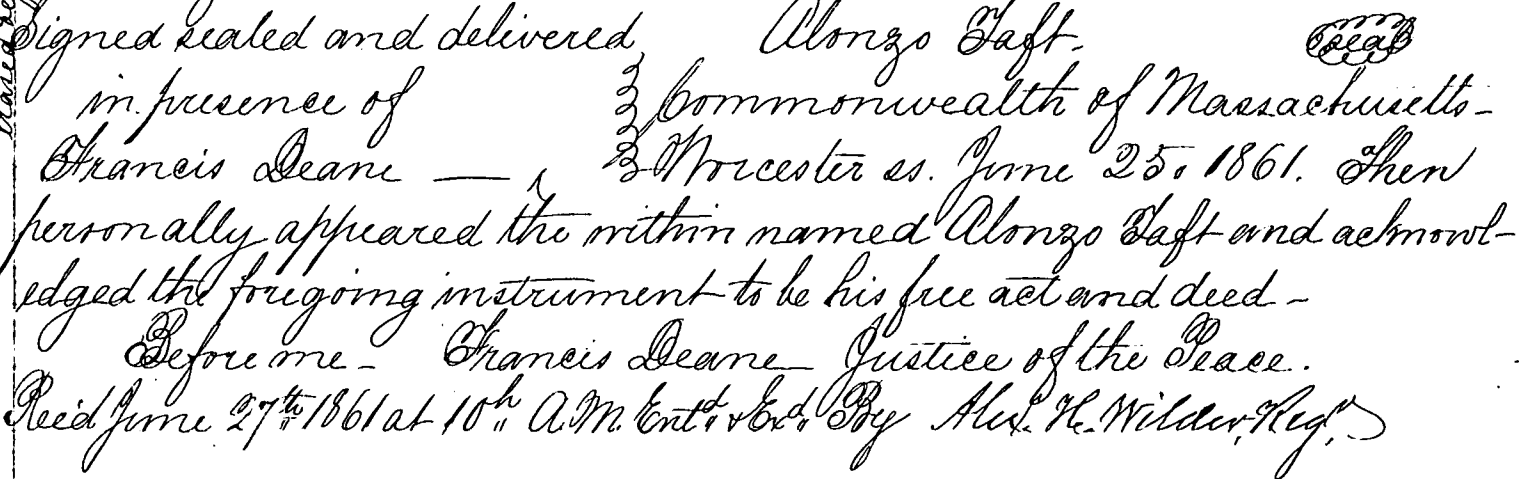 Signed sealed and delivered Alonzo Taft. Seal
in presence of Commonwealth of Massachusetts-
Francis Deane — Worcester ss. June 25, 1861. Then
personally appeared the within named Alonzo Taft and acknowl-
edged the foregoing instrument to be his free act and deed-
Before me- Francis Deane Justice of the Peace.
Rec'd June 27th 1861 at 10h A.M. Entd & Exd By Alex. H. Wilder, Regr.